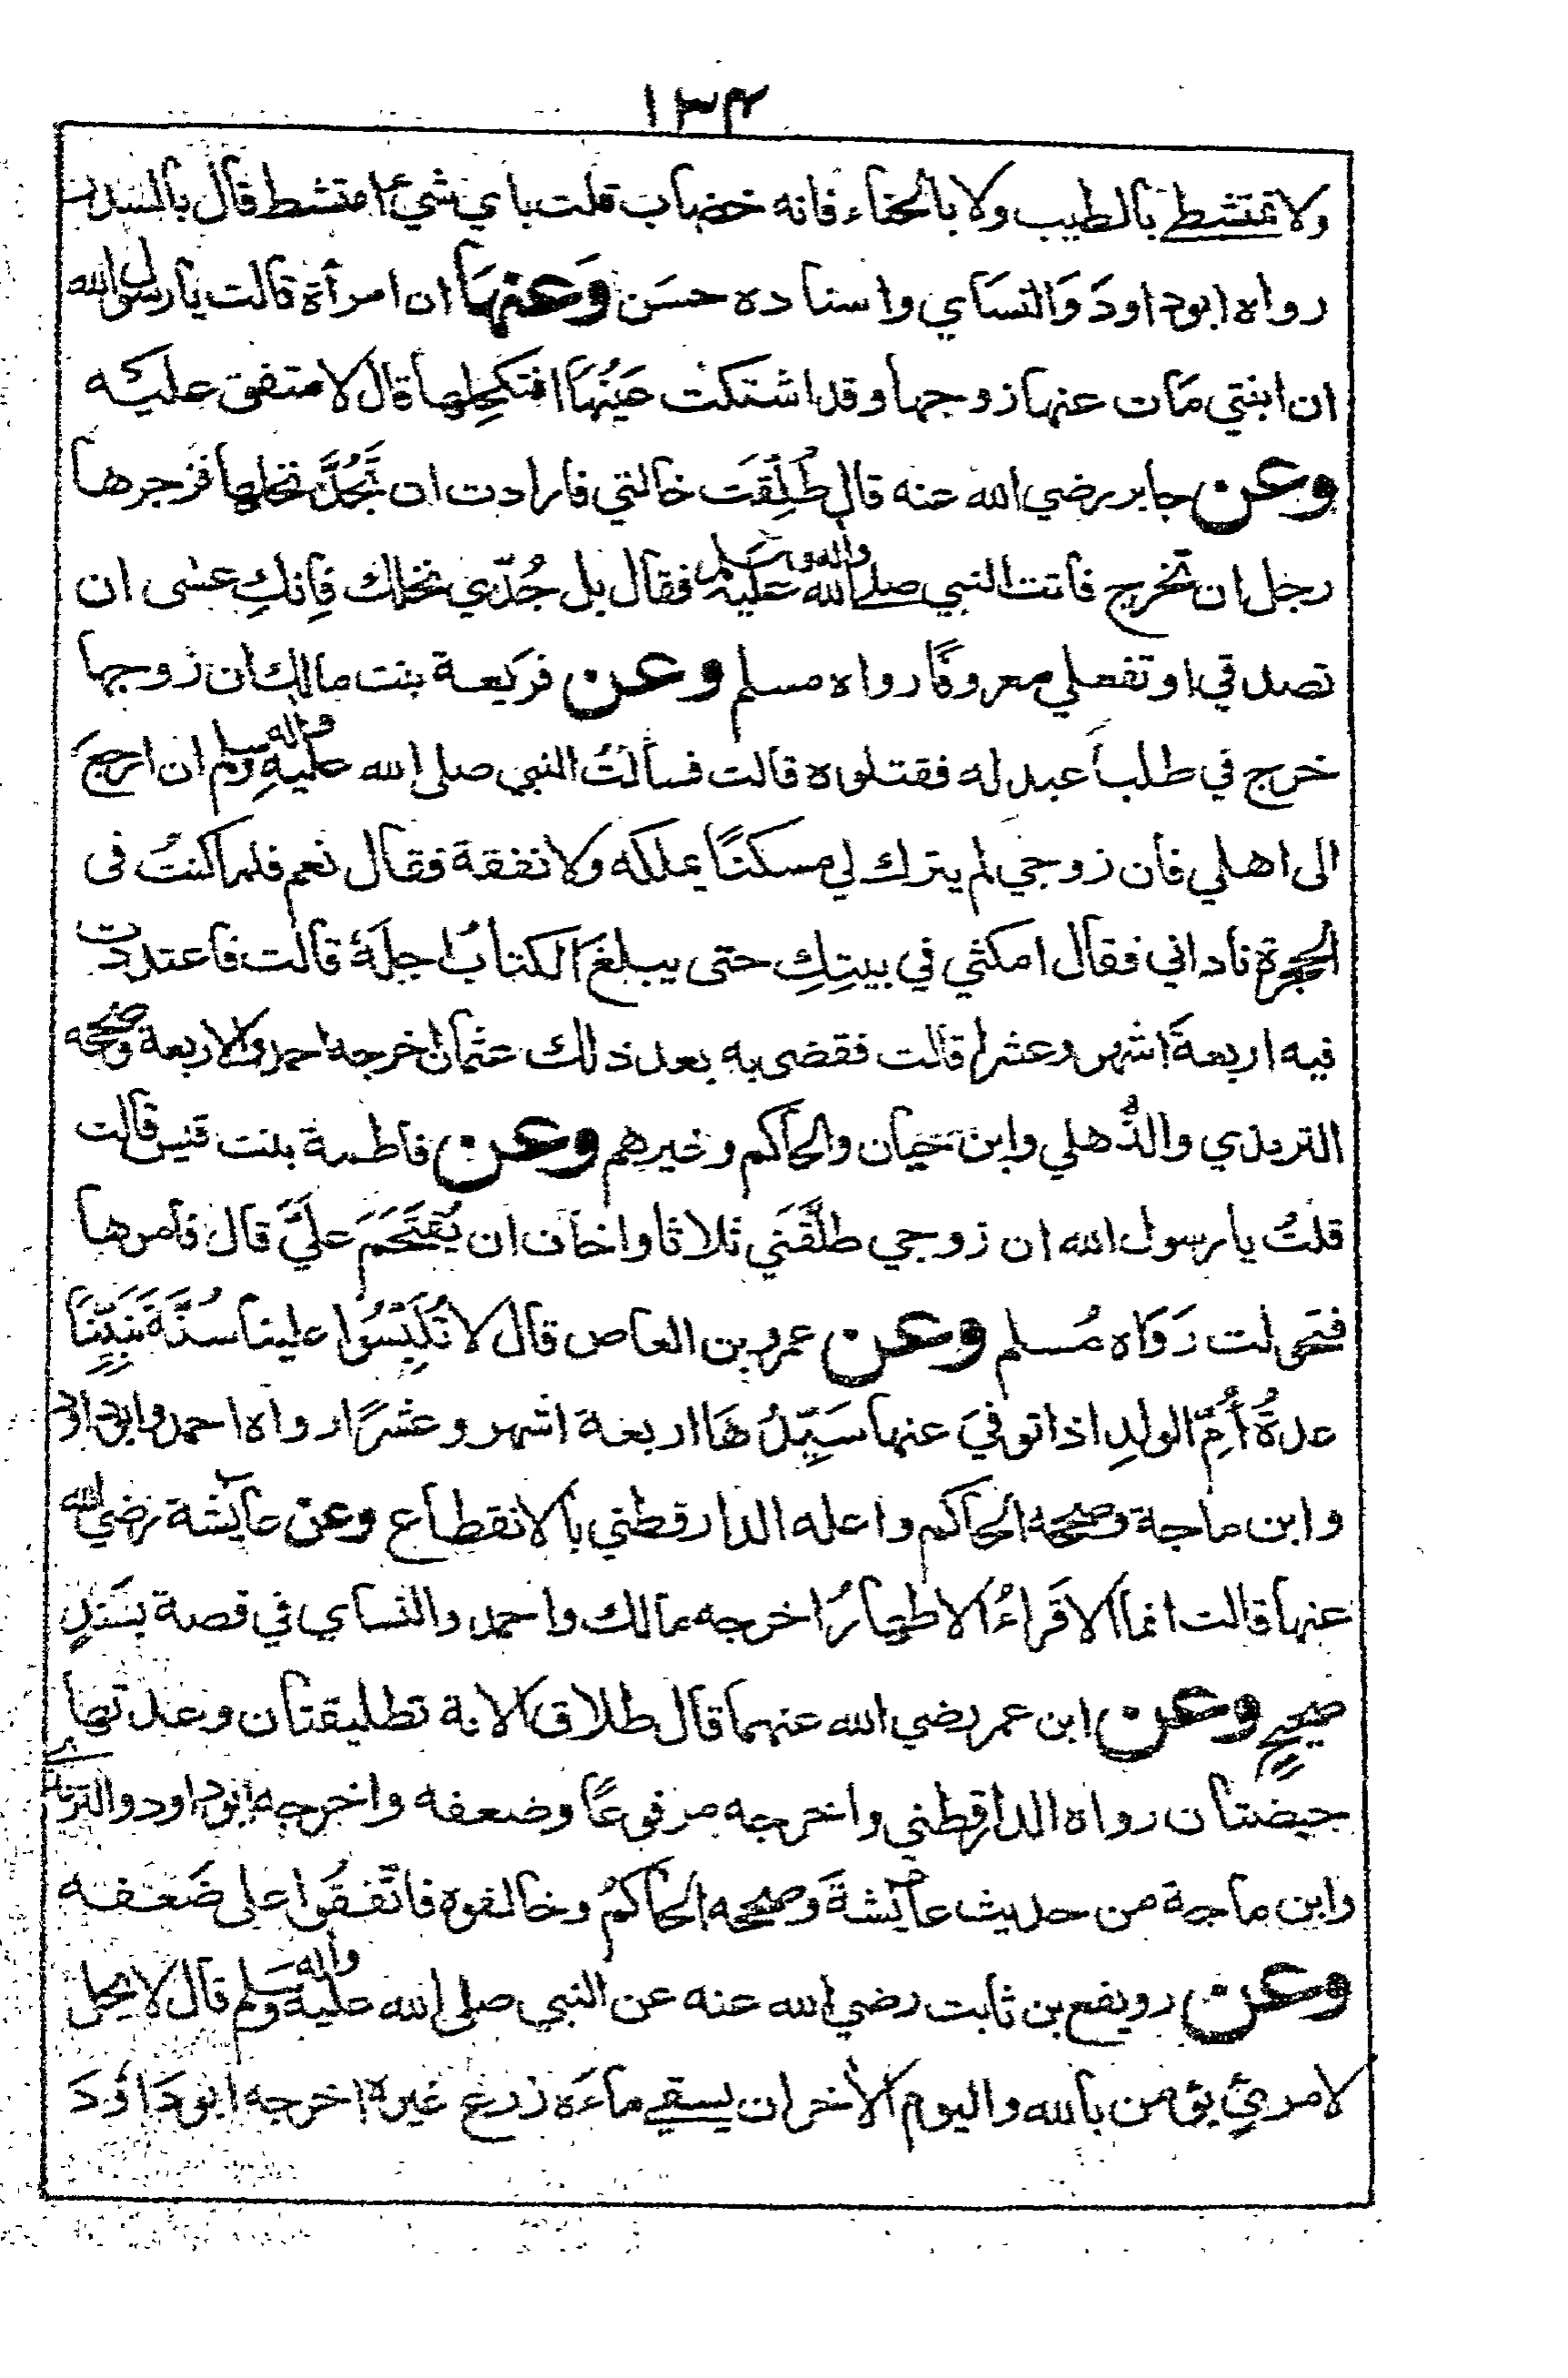 ١٣٤
ولا تمتشطي بالطيب ولا بالحناء فانه خضاب قلت باي شيء امتشط قال بالسدر
رواه ابوداود والنساي واسناده حسن وعنها ان امرأة قالت يا رسول الله
ان ابنتي مات عنها زوجها وقد اشتكت عينُها افنكحلها قال لا متفق عليه
وعن جابر رضي الله عنه قال طُلِّقَت خالتي فارادت ان تَجُدَّ نخلها فزجرها
رجل ان تخرج فاتت النبي صلى الله عليه واله وسلم فقال بل جُدّي نخلك فانكِ عسى ان
تصدقي او تفعلي معروفًا رواه مسلم وعن فريعة بنت مالك ان زوجها
خرج في طلب اعبد له فقتلوه قالت فسألتُ النبي صلى الله عليه واله وسلم ان ارجعَ
الى اهلي فان زوجي لم يترك لي مسكنًا يملكه ولا نفقة فقال نعم فلما كنتُ فى
الحجرة ناداني فقال امكثي في بيتِكِ حتى يبلغَ الكتابُ اجلَهُ قالت فاعتددت
فيه اربعةَ اشهر وعشرا قالت فقضى به بعد ذلك عثمان اخرجه احمد والاربعة وصححه
الترمذي والذُّهلي وابن حبان والحاكم وغيرهم وعن فاطمة بنت قيس قالت
قلتُ يا رسول الله ان زوجي طلَّقَني ثلاثا واخاف ان يُقتَحَمَ عليَّ قال فأمرها
فتحولت رَوَاه مُسلم وعن عمرو بن العاص قال لا تُلَبِّسُوا علينا سُنَّةَ نَبيِّنَا
عدةُ أُمِّ الولدِ اذا توفيَ عنها سَيِّدُهَا اربعة اشهر وعشرًا رواه احمد وابوداود
وابن ماجة وصححه الحاكم واعله الدارقطني بالانقطاع وعن عايشة رضي الله
عنها قالت انما الاقراءُ الاطهارُ اخرجه مالك واحمد والنساي في قصة بسَندٍ
صحيحٍ وعن ابن عمر رضي الله عنهما قال طلاق الامة تطليقتان وعدتها
حيضتان رواه الدارقطني واخرجه مرفوعًا وضعفه واخرجه ابوداود والترمذي
وابن ماجة من حديث عايشةَ وصححه الحاكمُ وخالفوه فاتّفقُوا على ضَعفه
وعن رويفع بن ثابت رضي الله عنه عن النبي صلى الله عليه واله وسلم قال لا يحل
لامرئٍ يؤمن بالله واليوم الأخر ان يسقي ماءَه زرع غيره اخرجه ابودَاؤدَ